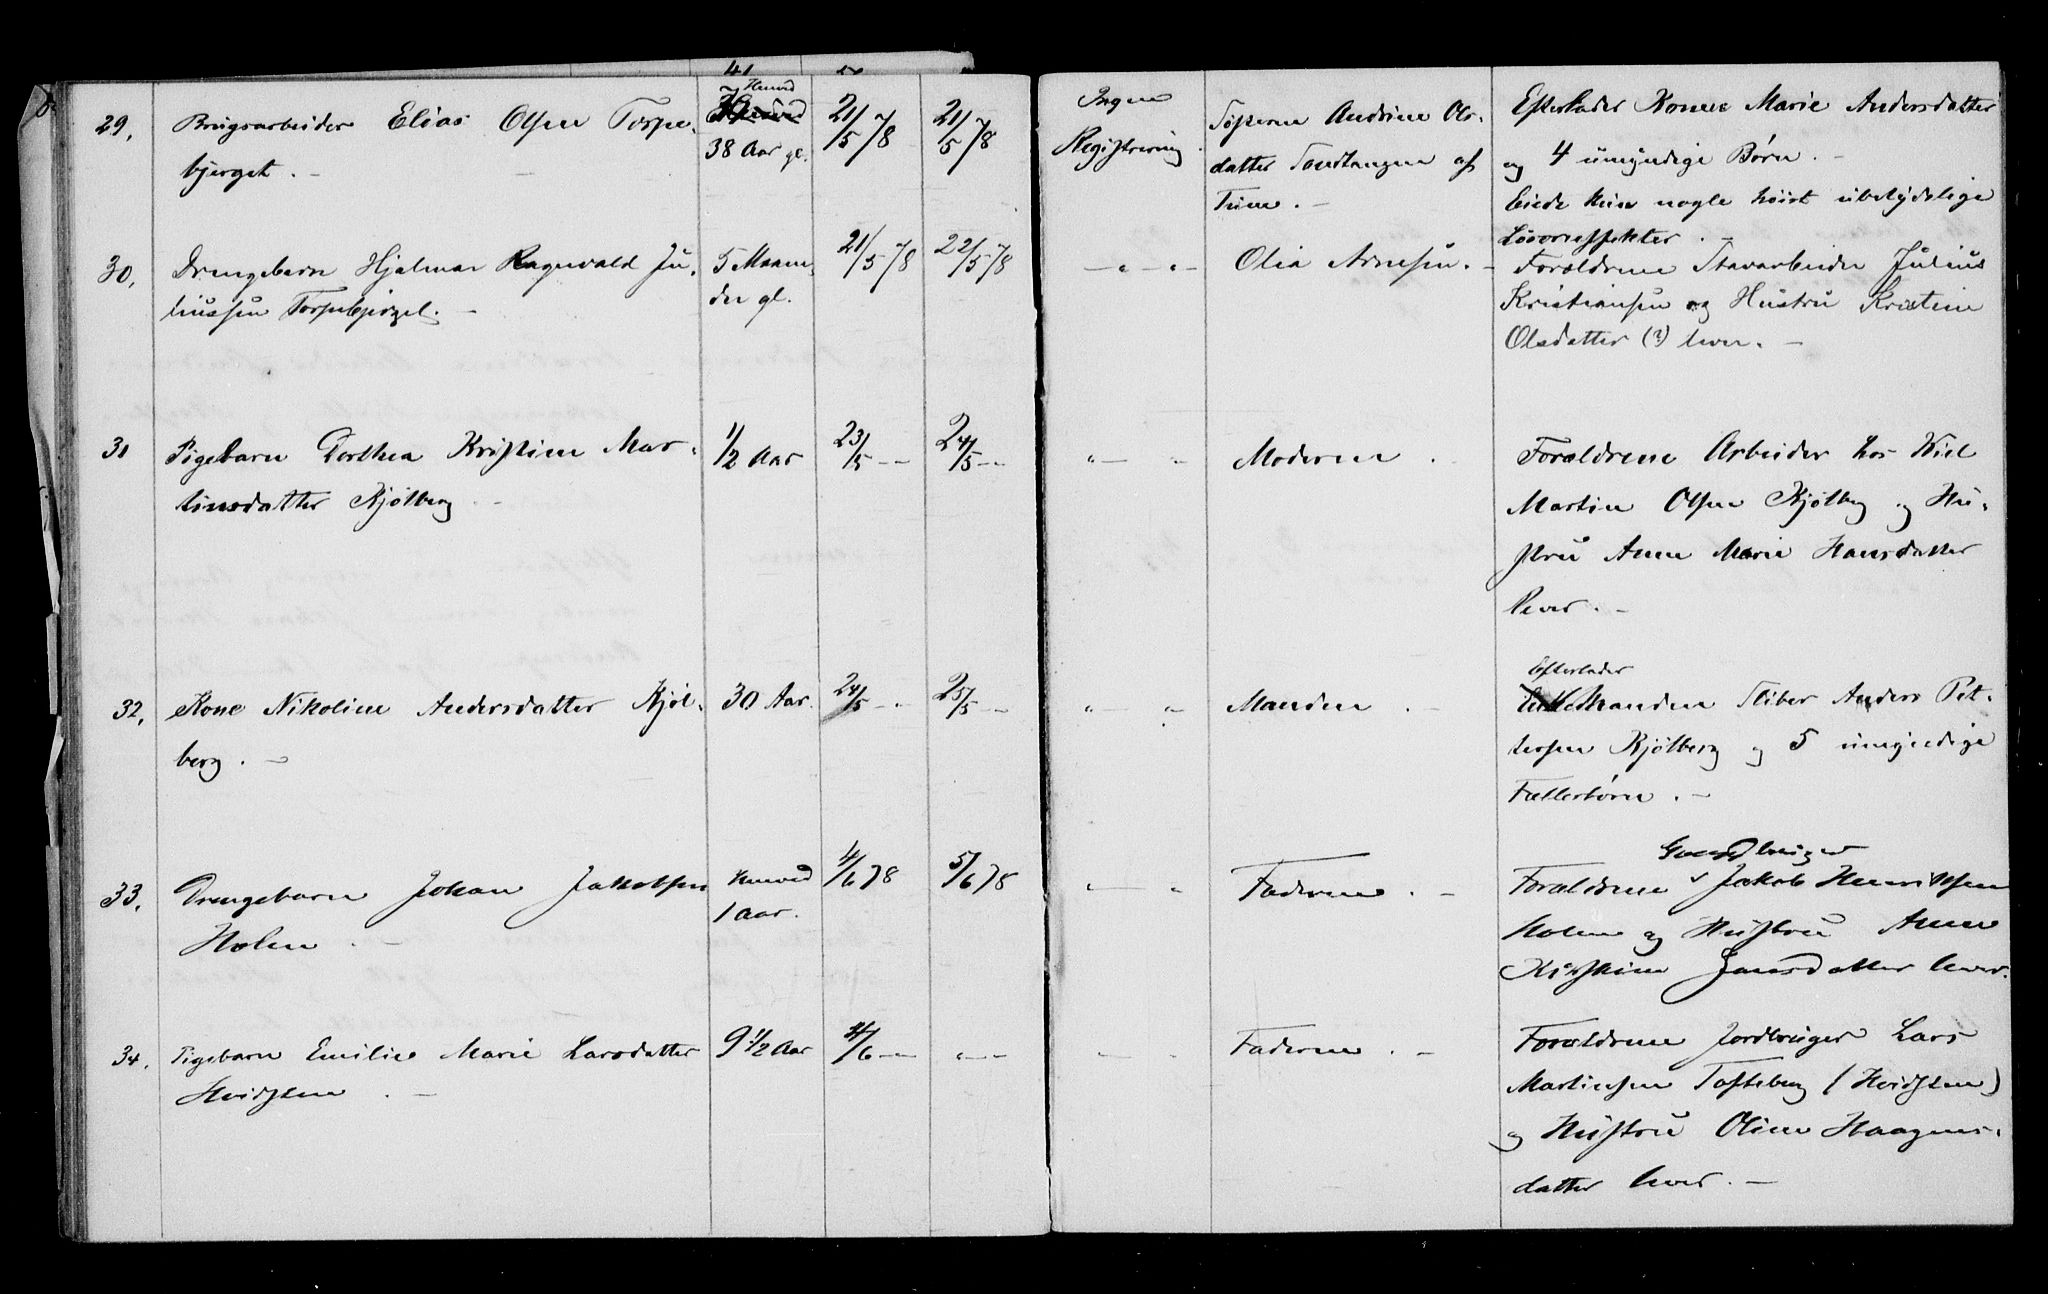 29, Brugsarbeider Elias Olsen Torpe-
bjerget. -
Henved
38 Aar gl.
21/5 78
21/5 78
Ingen
Registrering.
Søsteren Andrine Ols-
datter Tandtangen af
Tune. -
Efterlader Konen Marie Andersdatter
og 4 umyndige Børn. -
Eiede kun nogle høist ubetydelige
Løsøreeffekter. -
30, Drengebarn Hjalmar Ragnvald Ju-
liussen Torpebjerget. -
5 Maane-
der gl.
21/5 78
22/5 78
-"- "-
Olia Arnesen. -
Forældrene Stavarbeider Julius
Kristiansen og Hustru Kristine
Olsdatter (?) lever. -
31 Pigebarn Dorthea Kristine Mar-
tinsdatter Kjølberg. -
1/2 Aar
23/5 --
24/5 --
"- "
Moderen.
Forældrene Arbeider hos Wiel
Martin Olsen Kjølberg og Hu-
stru Anne Marie Hansdatter
lever. -
32, Kone Nikoline Andersdatter Kjøl-
berg. -
30 Aar.
24/5 -"
25/5 --
"- "
Manden. -
Efterlader
Manden Sliber Anders Pet-
tersen Kjølberg og 5 umyndige
Fællesbørn. -
33, Drengebarn Johan Jakobsen
Holm. -
Henved
1 Aar.
4/6 78
5/6 78
"- "
Faderen. -
Gaardbruger
Forældrene v Jakob Henriksen
Holm og Hustru Anne
Kristine Jensdatter lever.
34. Pigebarn Emilie Marie Larsdatter
Hvidsten. -
9 1/2 Aar
4/6 --
"--
"- "
Faderen. -
Forældrene Jordbruger Lars
Martinsen Tofteberg (Hvidsten)
og Hustru Oline Haagens-
datter lever. -